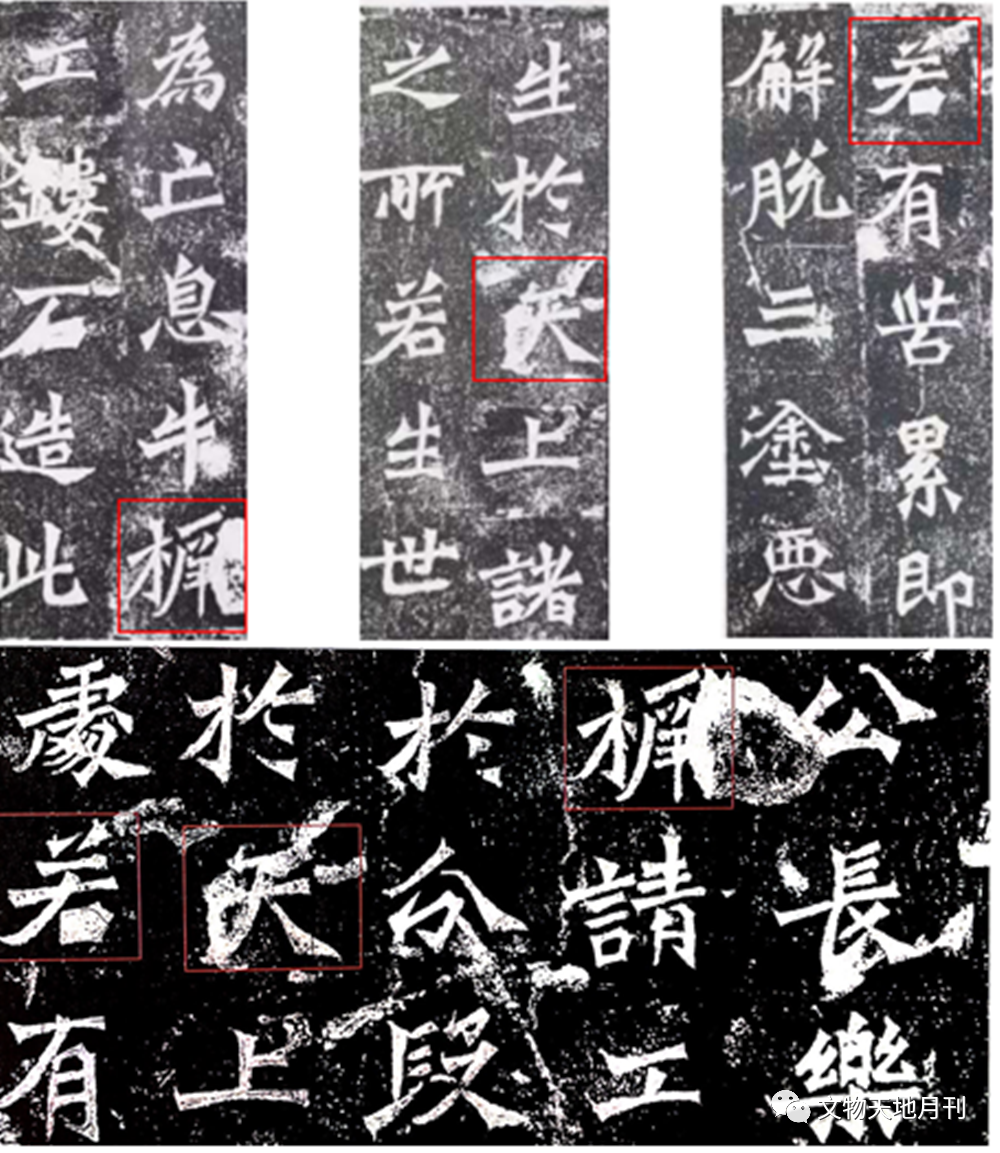 為亡息牛橛
工鏤石造此
生於天上諸
之所若生世
若有苦累即
解脫三塗惡
公長樂
橛請工
於分段
於天上
處若有
文物天地月刊